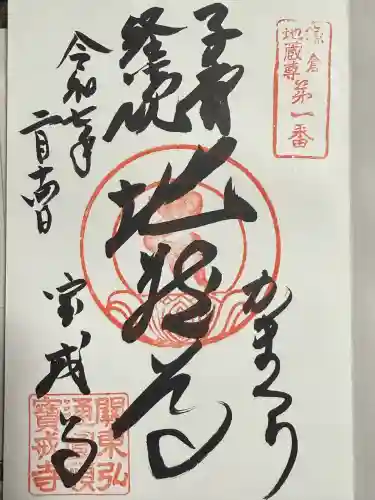 鎌倉
地蔵尊
第一番
子育
経読
地蔵尊
かまくら
令和七年
二月十四日
宝戒寺
關東弘
通圓頓
寶戒寺